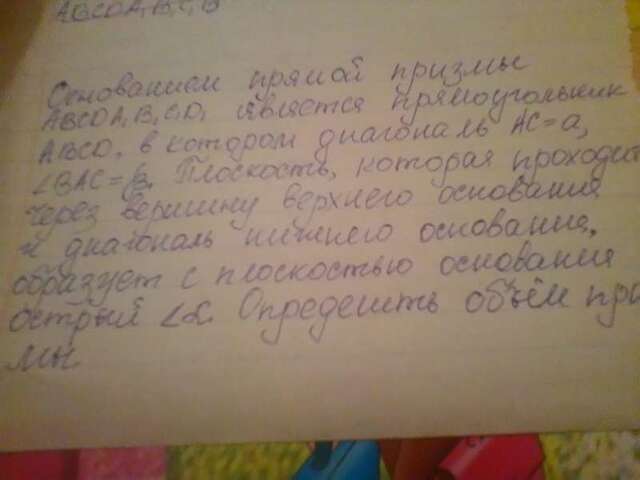 ABCDA₁B₁C₁D
Основанием прямой призмы
ABCDA₁B₁C₁D₁ является прямоугольник
ABCD, в котором диагональ AC=a,
∠BAC=β. Плоскость, которая проходит
через вершину верхнего основания
и диагональ нижнего основания,
образует с плоскостью основания
острый ∠α. Определить объём при
мы.